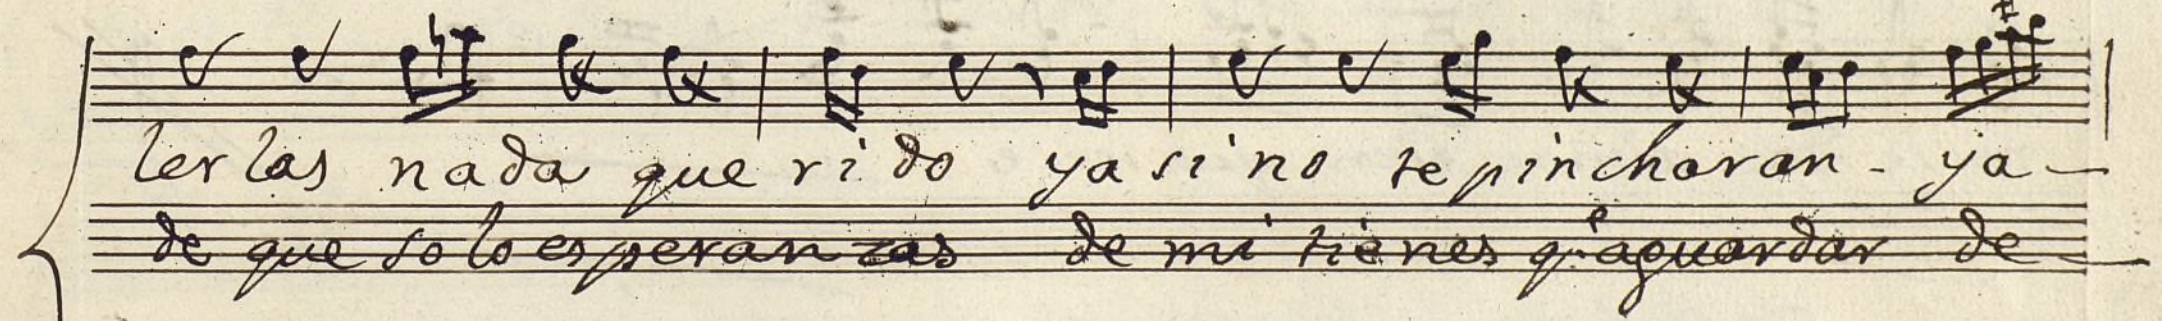 ler las nada que rido ya si no te pincharan - ya -
de que solo esperanzas de mi tienes q.e aguardar de -